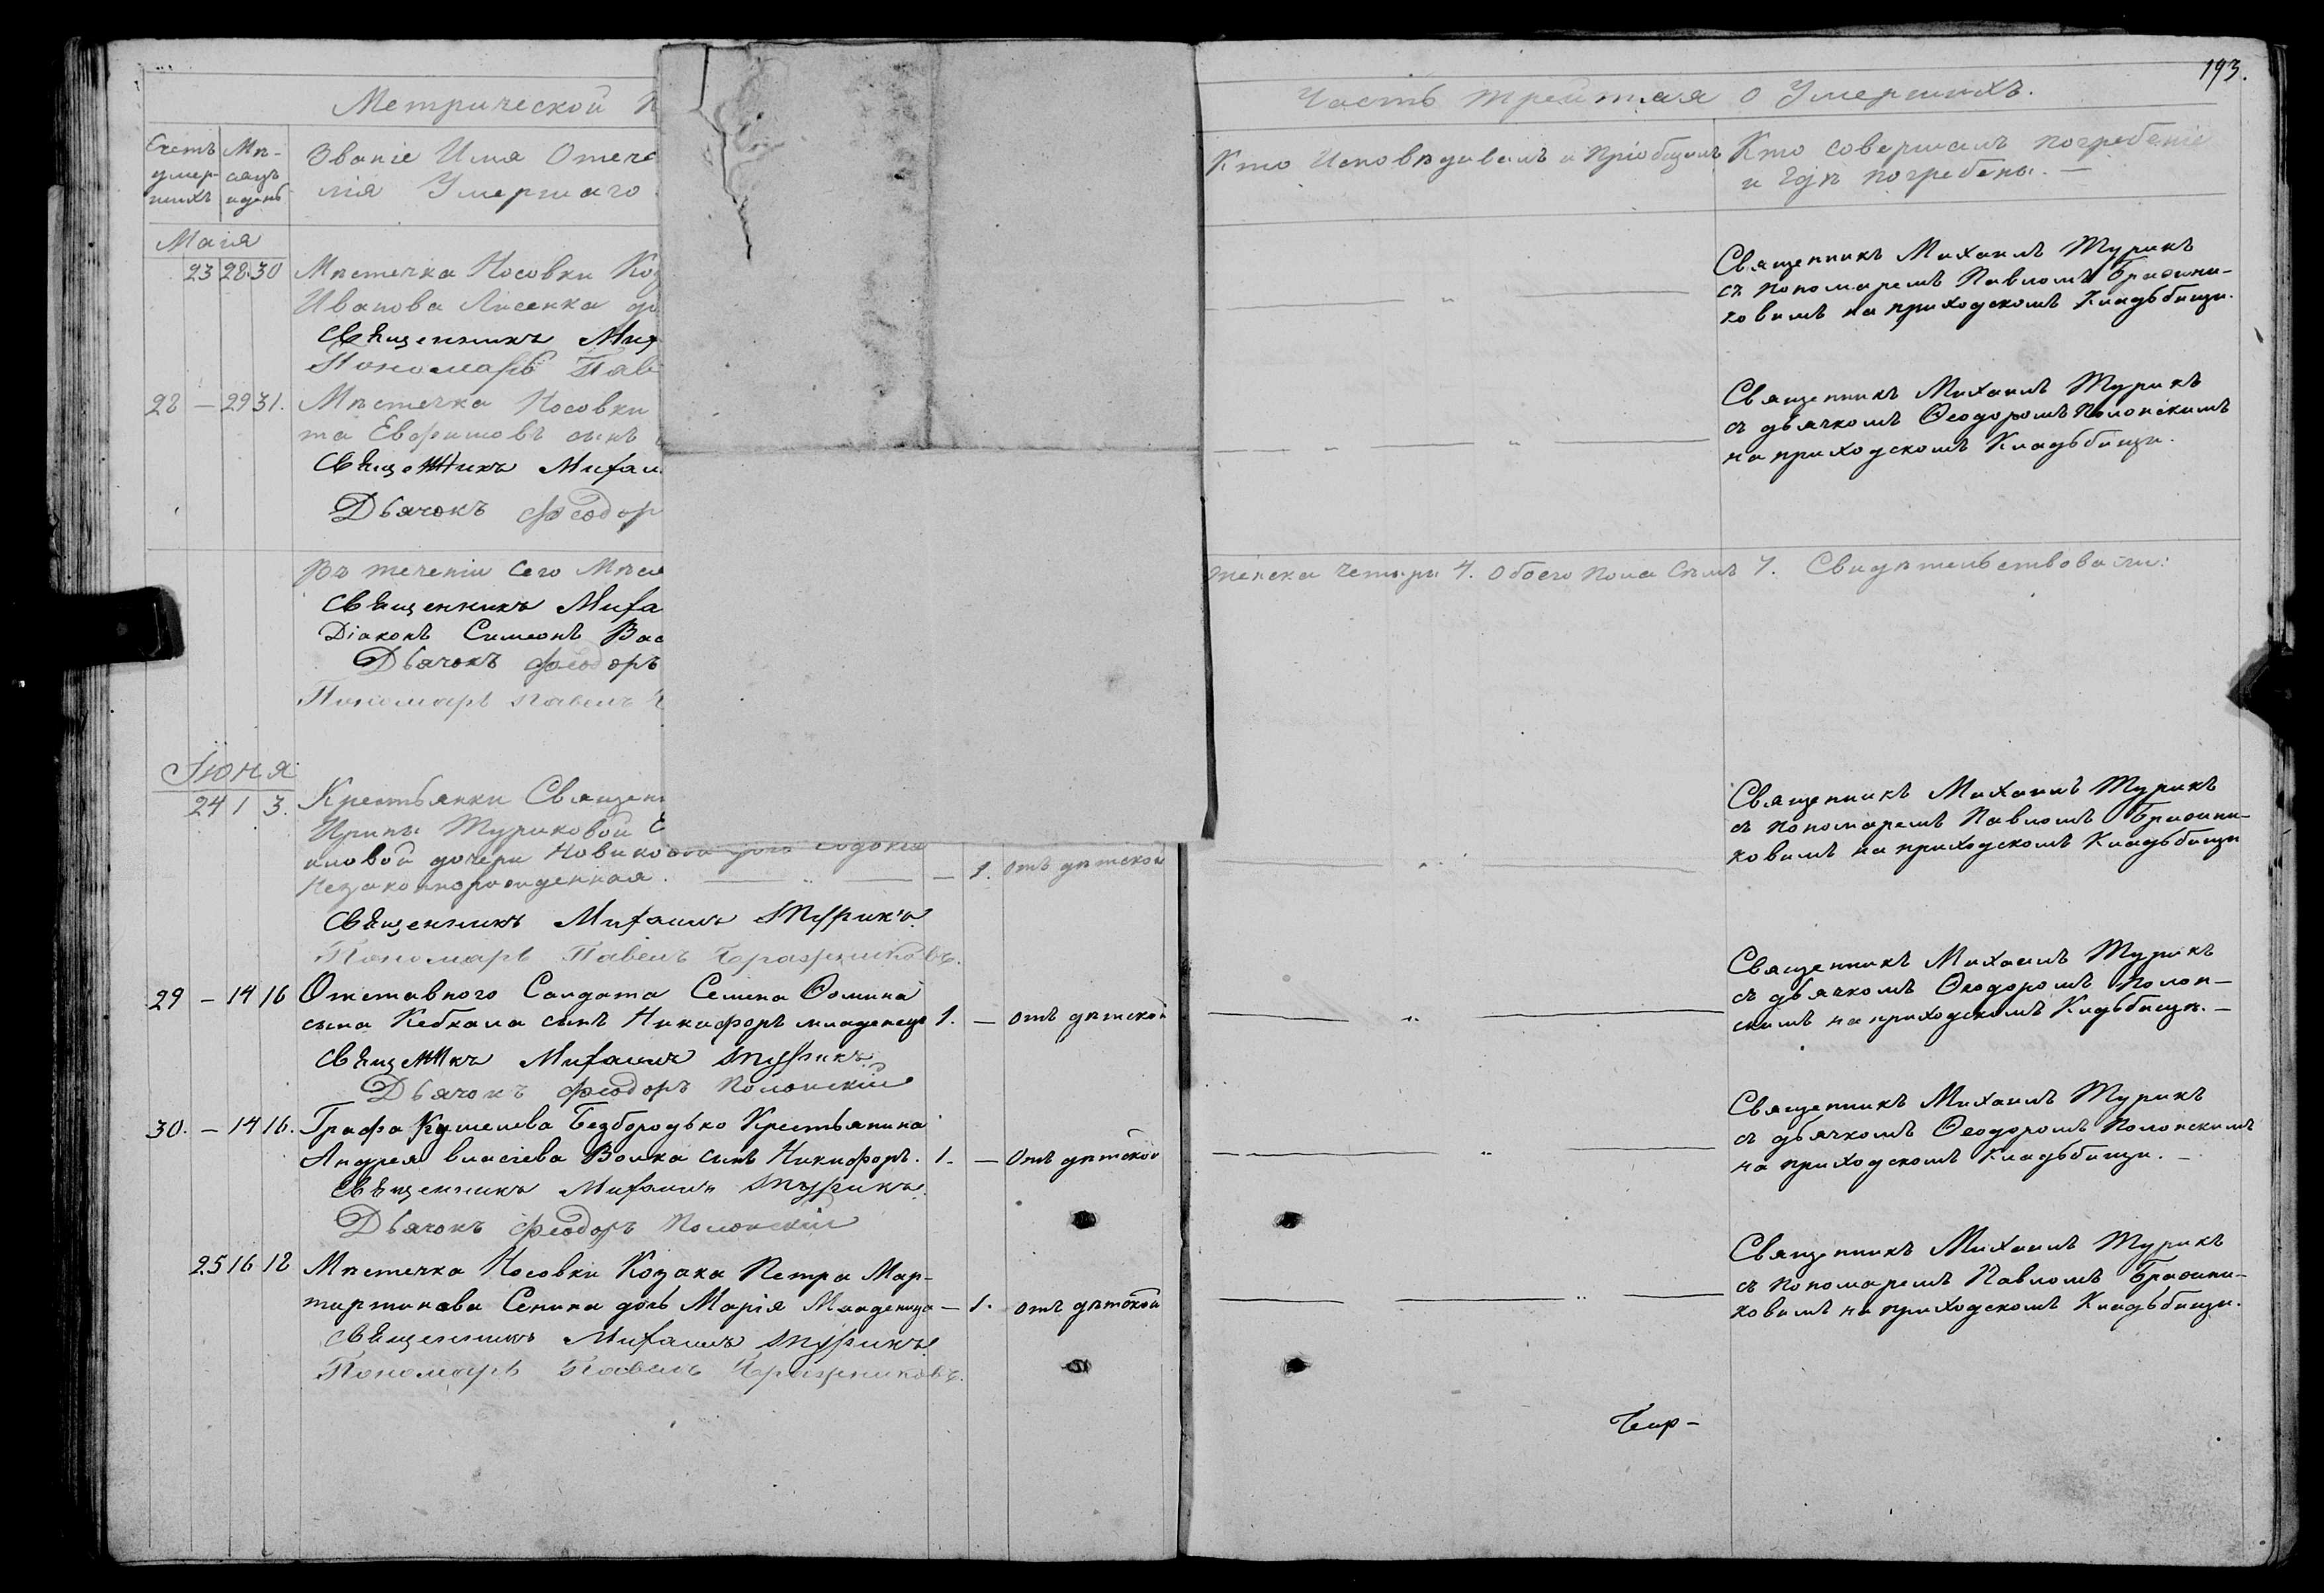 193.
Метрической
Часть третшая о Умершихъ.
Счетъ умер-шихъ
Мѣ-сяцъ и день
Званіе Имя Отече
лія Умершаго
Кто Исповѣдывалъ и Пріобщалъ
Кто совершалъ погребеніе
и гдѣ погребены. —
Маія
23 28 30 Мѣстечка Носовки Коз
Иванова Лисенка до
Священникъ Мих
Пономарь Пав
Священникъ Михаилъ Турикъ
съ пономаремъ Павломъ Бражни-
ковымъ на приходскомъ Кладбищи.
28 — 29 31. Мѣстечка Носовки
та Евфимовъ сынъ
Священникъ Михаи
Дьячокъ Феодор
Священникъ Михаилъ Турикъ
съ дьячкомъ Ѳеодоромъ Полонскимъ
на приходскомъ Кладьбищи.
Въ теченіи сего Мѣся
женска четыри 4. обоего пола семь 7. Свидѣтельствовали:
Священникъ Миха
Діаконъ Симеонъ Вас
Дьячокъ Феодоръ
Пономарь Павелъ
Іюня
24 1 3. Крестьянки Священ
Ирины Туриковой Е
иловой дочери Новиковой дочь Евдокія
незаконнорожденная. — — 1. отъ дѣтской
Священникъ Михаилъ Турикъ
Пономарь Павелъ Бражниковъ.
Священникъ Михаилъ Турикъ
съ пономаремъ Павломъ Бражни-
ковымъ на приходскомъ Кладьбищи
29 — 14 16 Отставного Солдата Семена Ѳомина
сына Кебкала сынъ Никифоръ младенецъ 1. — отъ дѣтской
Священникъ Михаилъ Турикъ
Дьячокъ Феодоръ Полонскій
Священникъ Михаилъ Турикъ
съ дьячкомъ Ѳеодоромъ Полон-
скимъ на приходскомъ Кладьбищи. —
30. — 14 16. Графа Кушелева Безбородько Крестьянина
Андрея Власіева Волка сынъ Никифоръ. 1. — Отъ дѣтской
Священникъ Михаилъ Турикъ
Дьячокъ Феодоръ Полонскій
Священникъ Михаилъ Турикъ
съ дьячкомъ Ѳеодоромъ Полонскимъ
на приходскомъ Кладьбищи. —
25 16 18 Мѣстечка Носовки Козака Петра Мар-
тиртинова Сенина дочь Марія Младеница — 1. отъ дѣтской
Священникъ Михаилъ Турикъ
Пономарь Павелъ Бражниковъ.
Священникъ Михаилъ Турикъ
съ пономаремъ Павломъ Бражни-
ковымъ на приходскомъ Кладьбищи.